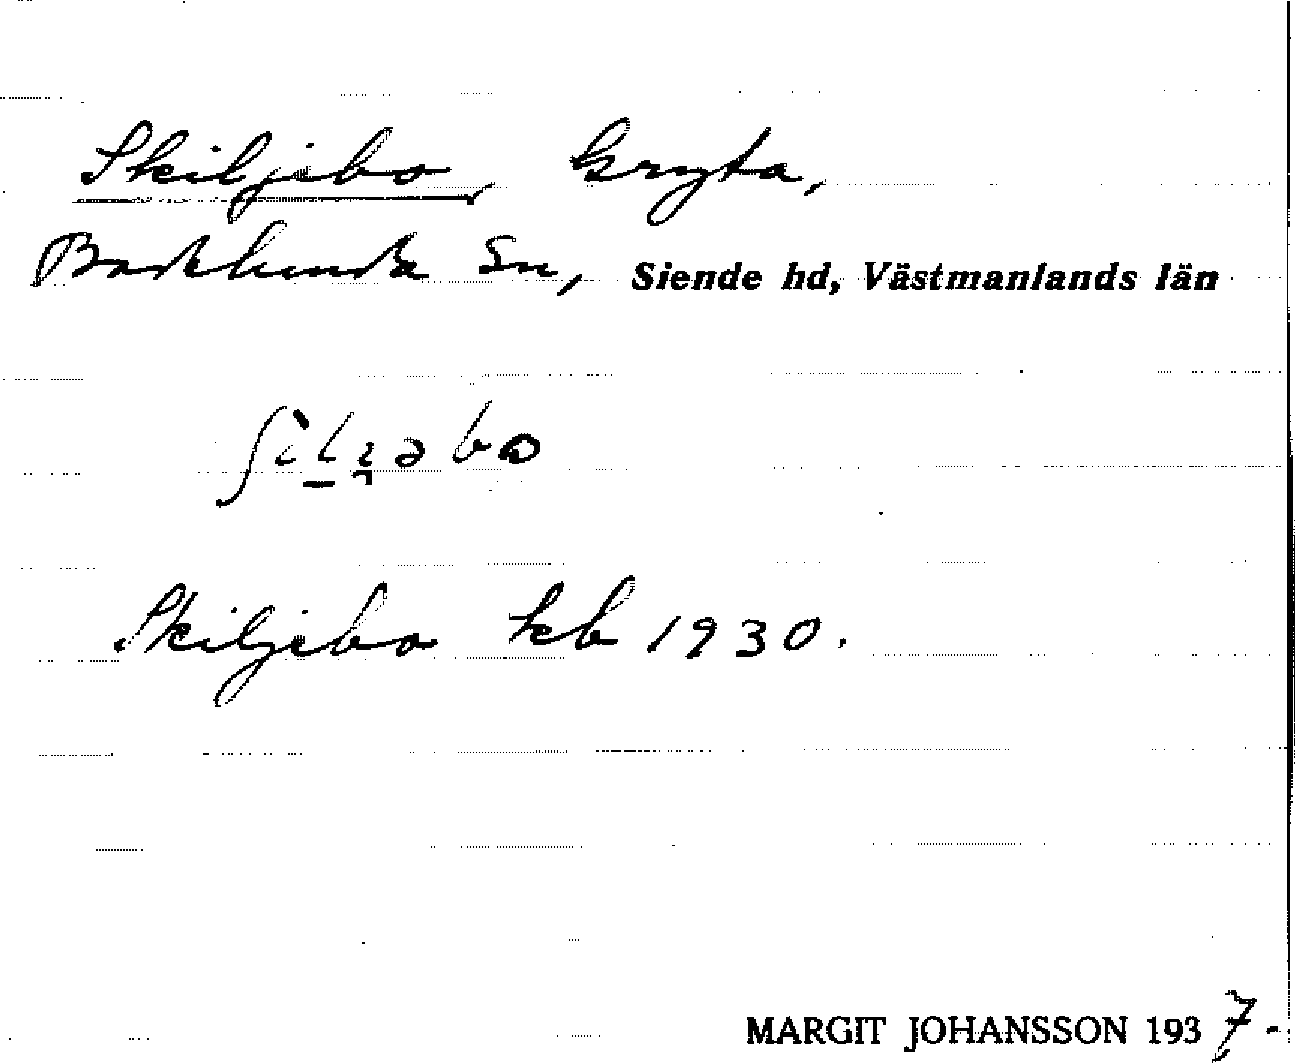 Skiljebo, Gryta,
Barkhula Sn, Siende hd, Västmanlands län
Skiljebo kb 1930.
MARGIT JOHANSSON 1937-